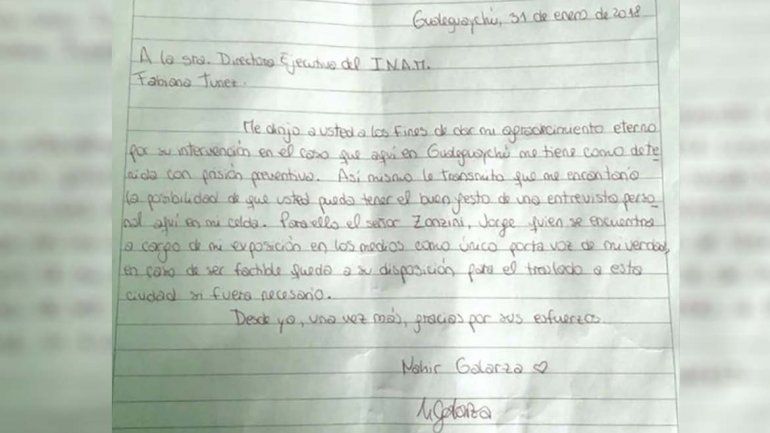 Gualeguaychú, 31 de enero de 2018
A la sra. Directora Ejecutiva del I.N.A.M.
Fabiana Tunez.
Me dirijo a usted a los fines de dar mi agradecimiento eterno
por su intervención en el caso que aquí en Gualeguaychú me tiene como dete-
nida con prisión preventiva. Así mismo le transmito que me encantaría
la posibilidad de que usted pueda tener el buen gesto de una entrevista perso-
nal aquí en mi celda. Para ello el señor Zonzini, Jorge quien se encuentra
a cargo de mi exposición en los medios como único porta voz de mi verdad,
en caso de ser factible queda a su disposición para el traslado a esta
ciudad si fuera necesario.
Desde ya, una vez más, gracias por sus esfuerzos.
Nahir Galarza ♡
N Galarza